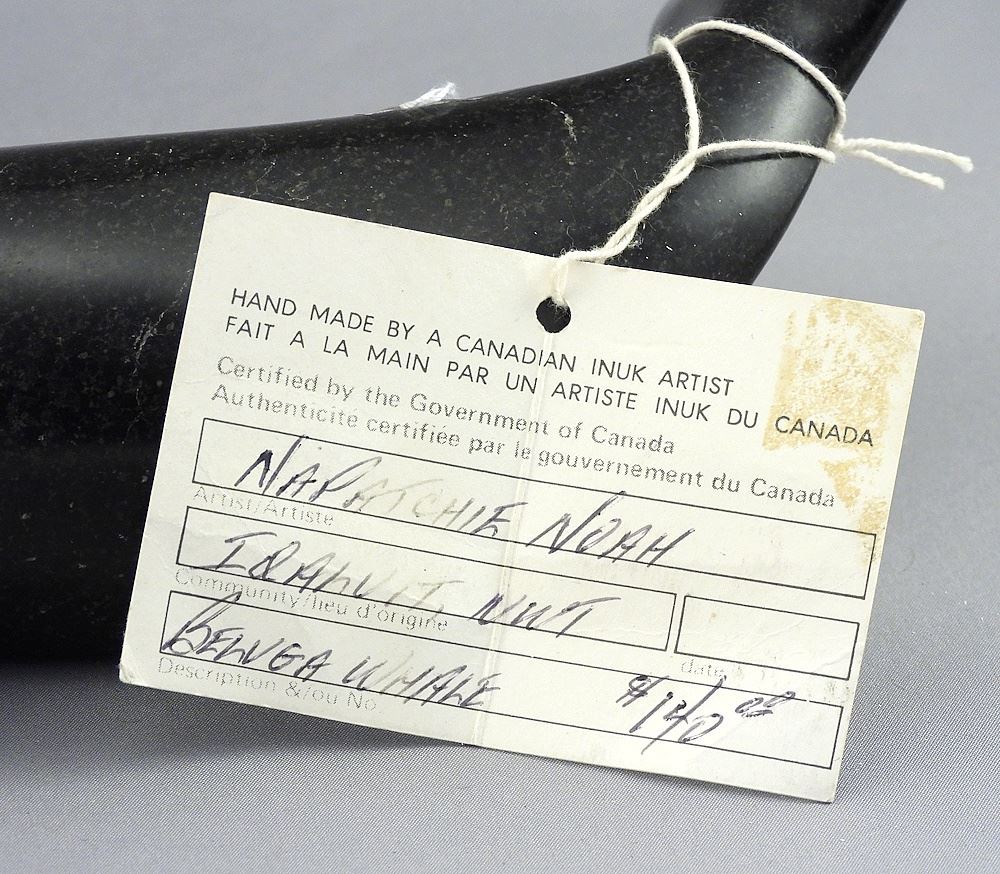 HAND MADE BY A CANADIAN INUK ARTIST
FAIT A LA MAIN PAR UN ARTISTE INUK DU CANADA
Certified by the Government of Canada
Authenticité certifiée par le gouvernement du Canada
NAPATCHIE NOAH
Artist/Artiste
IQALUIT, NWT
Community/lieu d'origine
date
BELUGA WHALE $140.00
Description &/ou No.